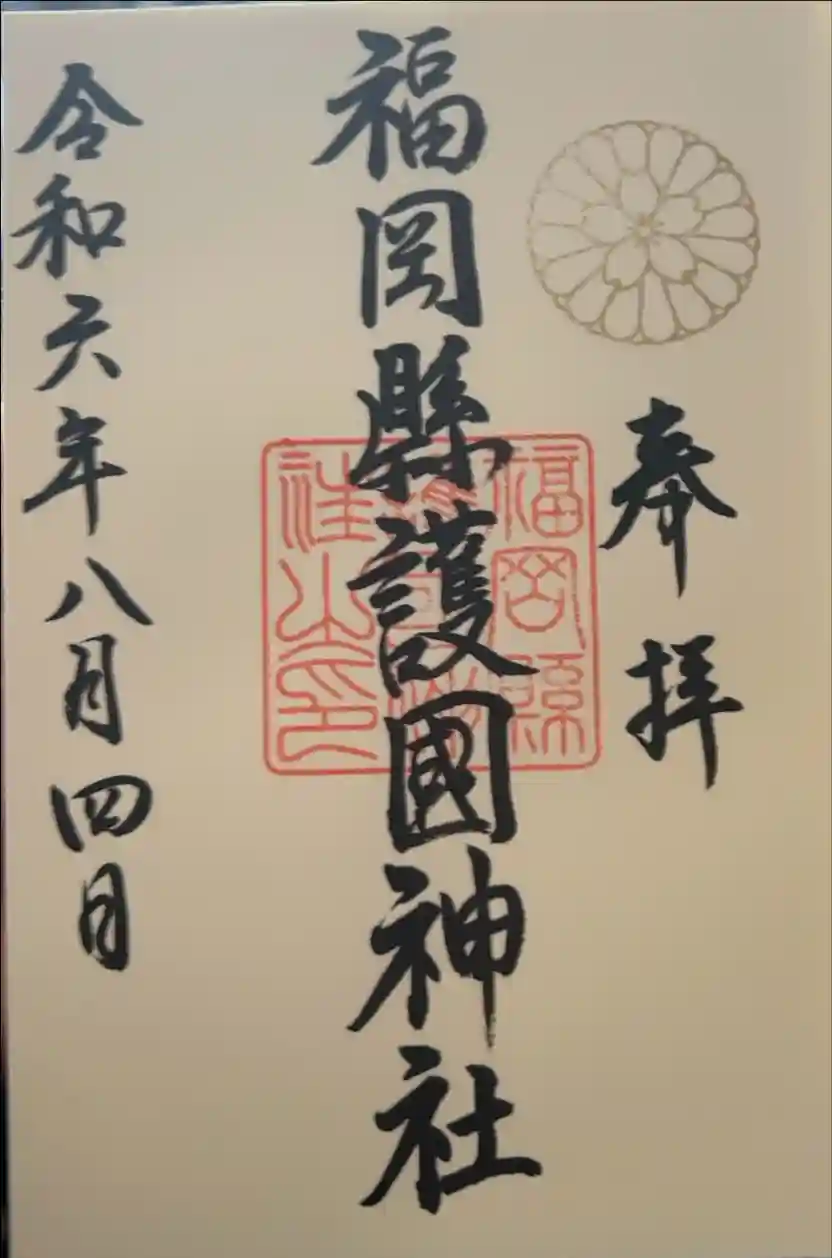 奉拝
福岡縣護國神社
令和六年八月四日
福岡縣